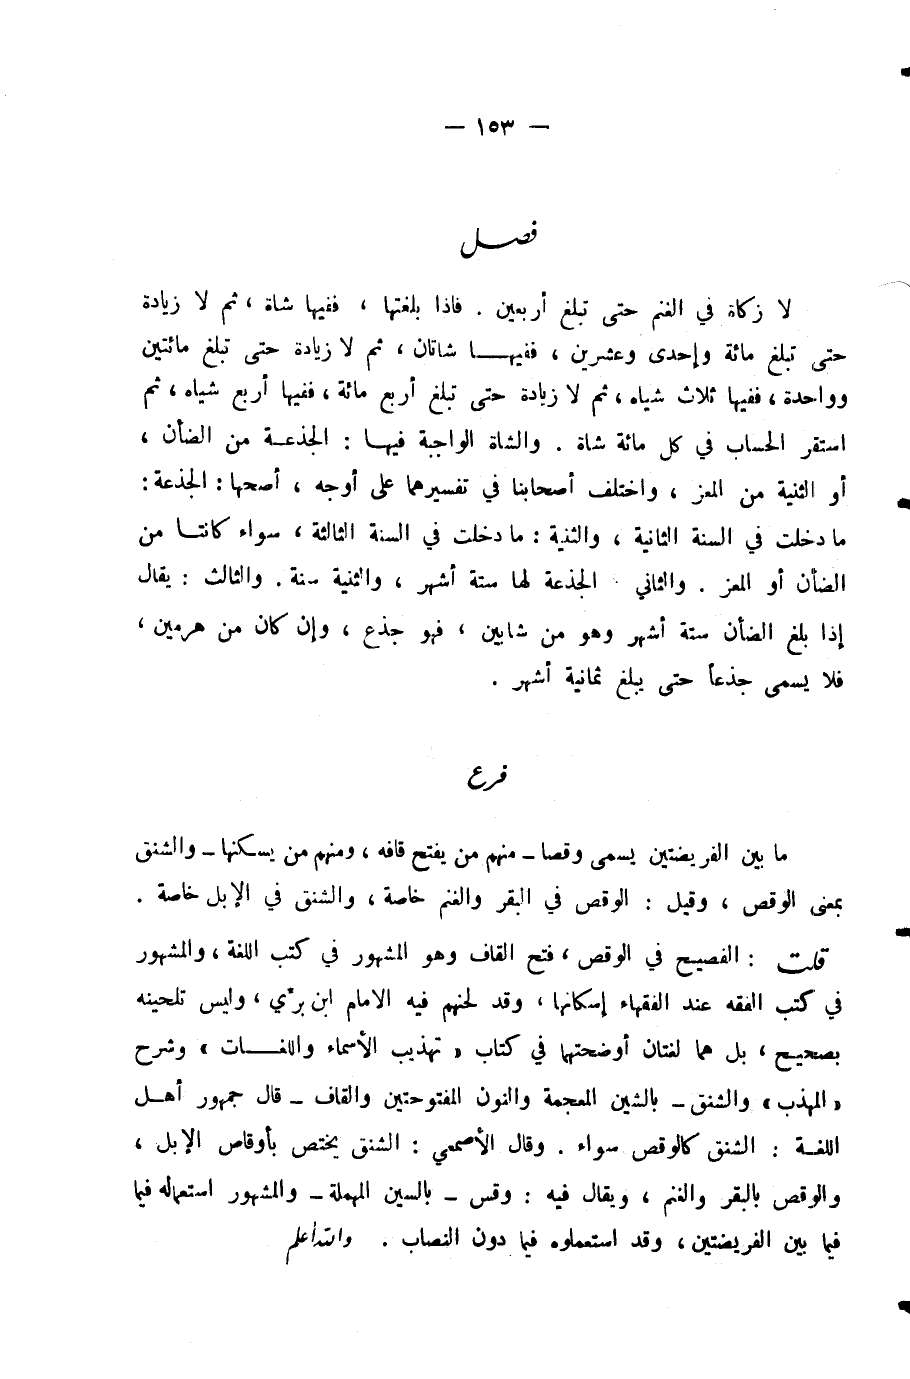 — ١٥٣ —
فصل
لا زكاة في الغنم حتى تبلغ أربعين . فاذا بلغتها ، ففيها شاة ، ثم لا زيادة
حتى تبلغ مائة وإحدى وعشرين ، ففيهـا شاتان ، ثم لا زيادة حتى تبلغ مائتين
وواحدة ، ففيها ثلاث شياه ، ثم لا زيادة حتى تبلغ أربع مائة ، ففيها أربع شياه ، ثم
استقر الحساب في كل مائة شاة . والشاة الواجبة فيهـا : الجذعـة من الضأن ،
أو الثنية من المعز ، واختلف أصحابنا في تفسيرهما على أوجه ، أصحها : الجذعة :
ما دخلت في السنة الثانية ، والثنية : ما دخلت في السنة الثالثة ، سواء كانتـا من
الضأن أو المعز . والثاني الجذعة لها ستة أشهر ، والثنية سنة . والثالث : يقال
إذا بلغ الضأن ستة أشهر وهو من شابين ، فهو جذع ، وإن كان من هرمين ،
فلا يسمى جذعاً حتى يبلغ ثمانية أشهر .
فرع
ما بين الفريضتين يسمى وقصا ــ منهم من يفتح قافه ، ومنهم من يسكنها ــ والشنق
بمعنى الوقص ، وقيل : الوقص في البقر والغنم خاصة ، والشنق في الإبل خاصة .
قلت : الفصيح في الوقص ، فتح القاف وهو المشهور في كتب اللغة ، والمشهور
في كتب الفقه عند الفقهاء إسكانها ، وقد لحنهم فيه الامام ابن برّي ، وليس تلحينه
بصحيح ، بل هما لغتان أوضحتها في كتاب « تهذيب الأسماء واللغـــات » وشرح
« المهذب » والشنق ــ بالشين المعجمة والنون المفتوحتين والقاف ــ قال جمهور أهـل
اللغـة : الشنق كالوقص سواء . وقال الأصمعي : الشنق يختص بأوقاص الإبل ،
والوقص بالبقر والغنم ، ويقال فيه : وقس ــ بالسين المهملة ــ والمشهور استعماله فيما
فيما بين الفريضتين ، وقد استعملوه فيما دون النصاب . والله أعلم